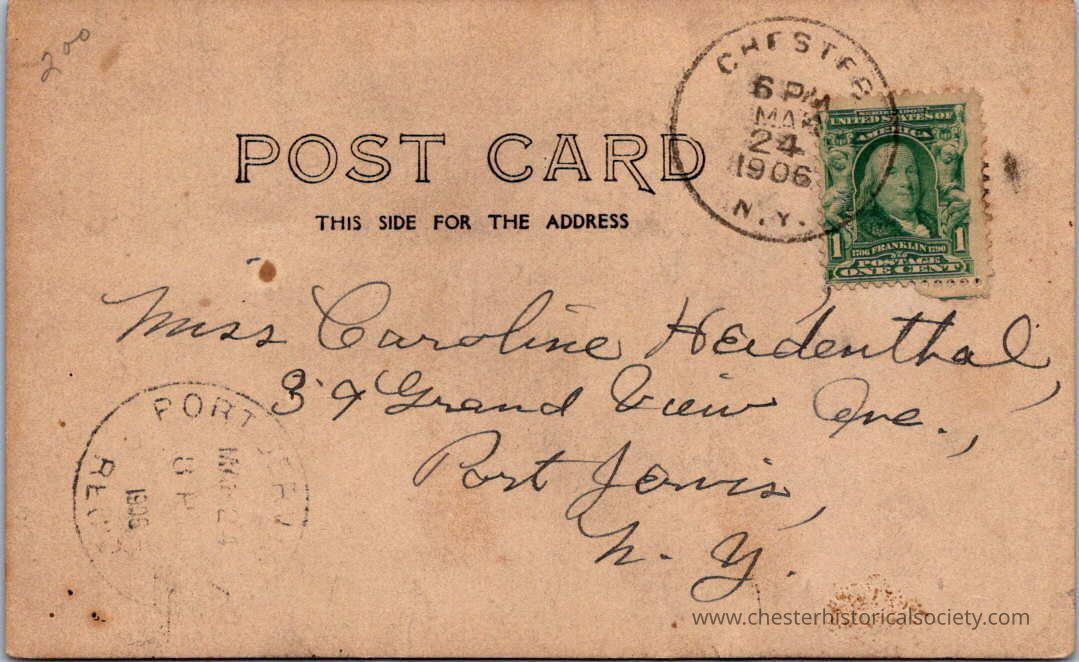 200
CHESTER
6 PM
MAR
24
1906
N.Y.
SERIES 1902
UNITED STATES OF
AMERICA
1 1706 FRANKLIN 1790 1
POSTAGE
ONE CENT
POST CARD
THIS SIDE FOR THE ADDRESS
Miss Caroline Heidenthal,
39 Grand View Ave.,
Port Jervis,
N. Y.
PORT JERV
MAR 24
1906
www.chesterhistoricalsociety.com